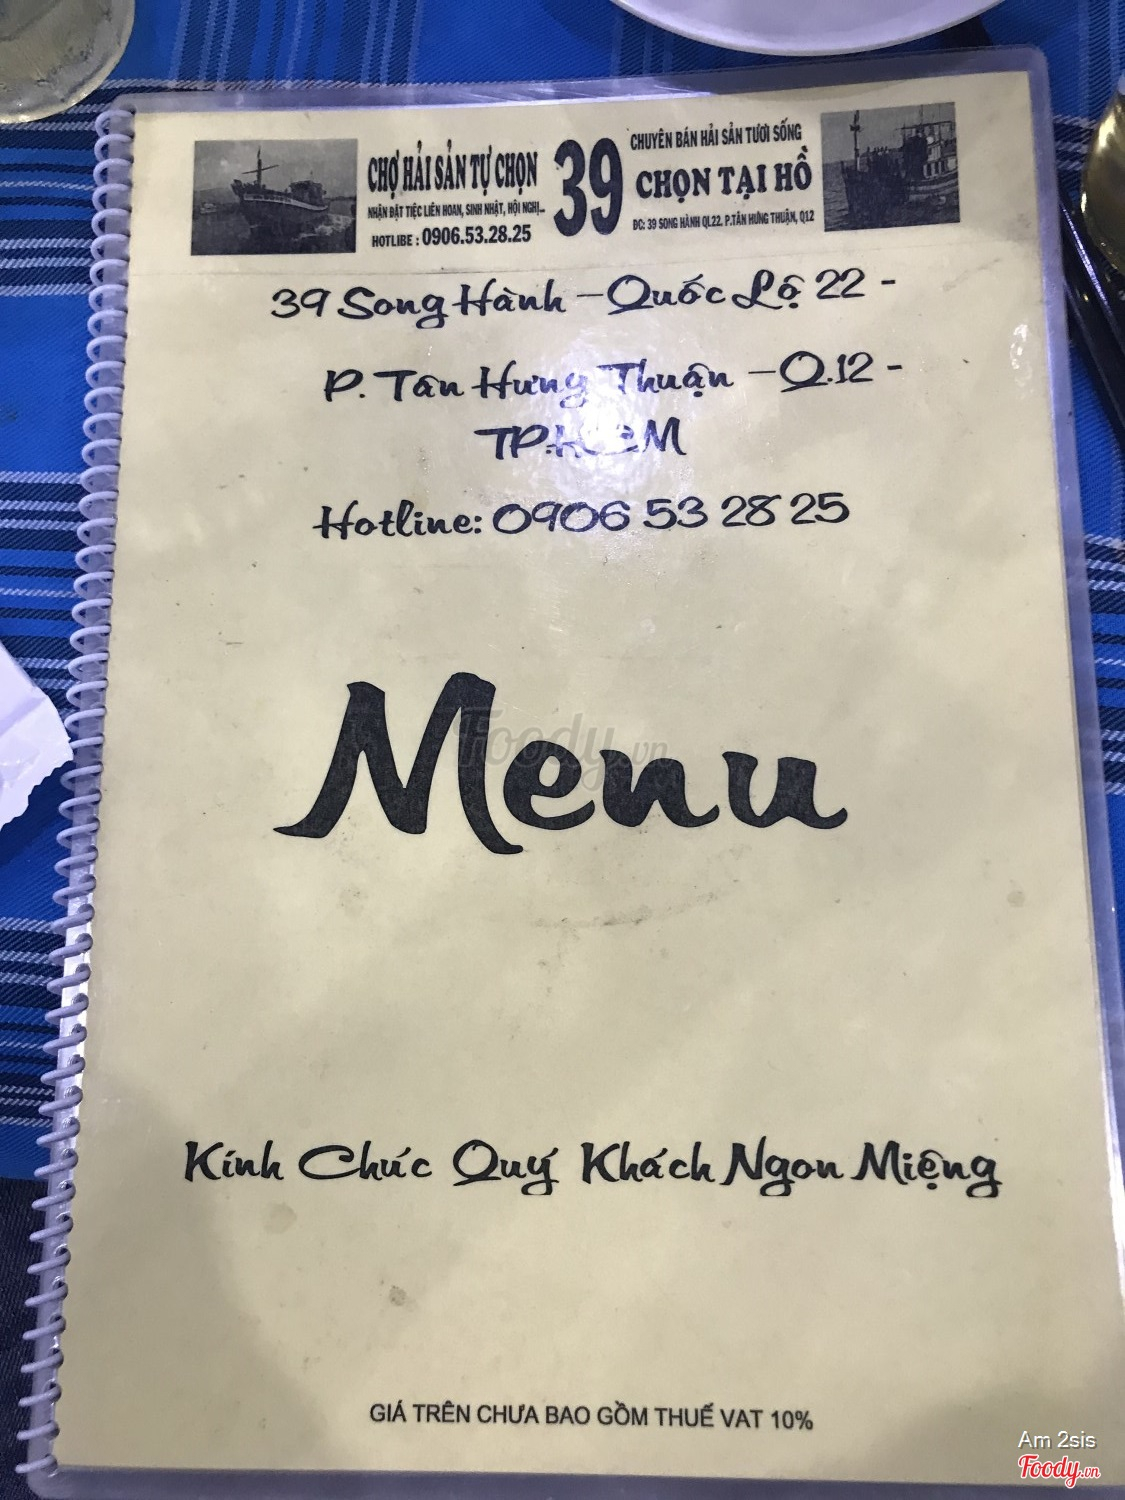 CHỢ HẢI SẢN TỰ CHỌN
NHẬN ĐẶT TIỆC LIÊN HOAN, SINH NHẬT, HỘI NGHỊ...
HOTLIBE : 0906.53.28.25
39
CHUYÊN BÁN HẢI SẢN TƯƠI SỐNG
CHỌN TẠI HỒ
ĐC: 39 SONG HÀNH QL22. P.TÂN HƯNG THUẬN, Q12
39 Song Hành – Quốc Lộ 22 -
P. Tân Hưng Thuận – Q.12 -
TP.HCM
Hotline: 0906 53 28 25
Menu
Foody.vn
Kính Chúc Quý Khách Ngon Miệng
GIÁ TRÊN CHƯA BAO GỒM THUẾ VAT 10%
Am 2sis
Foody.vn